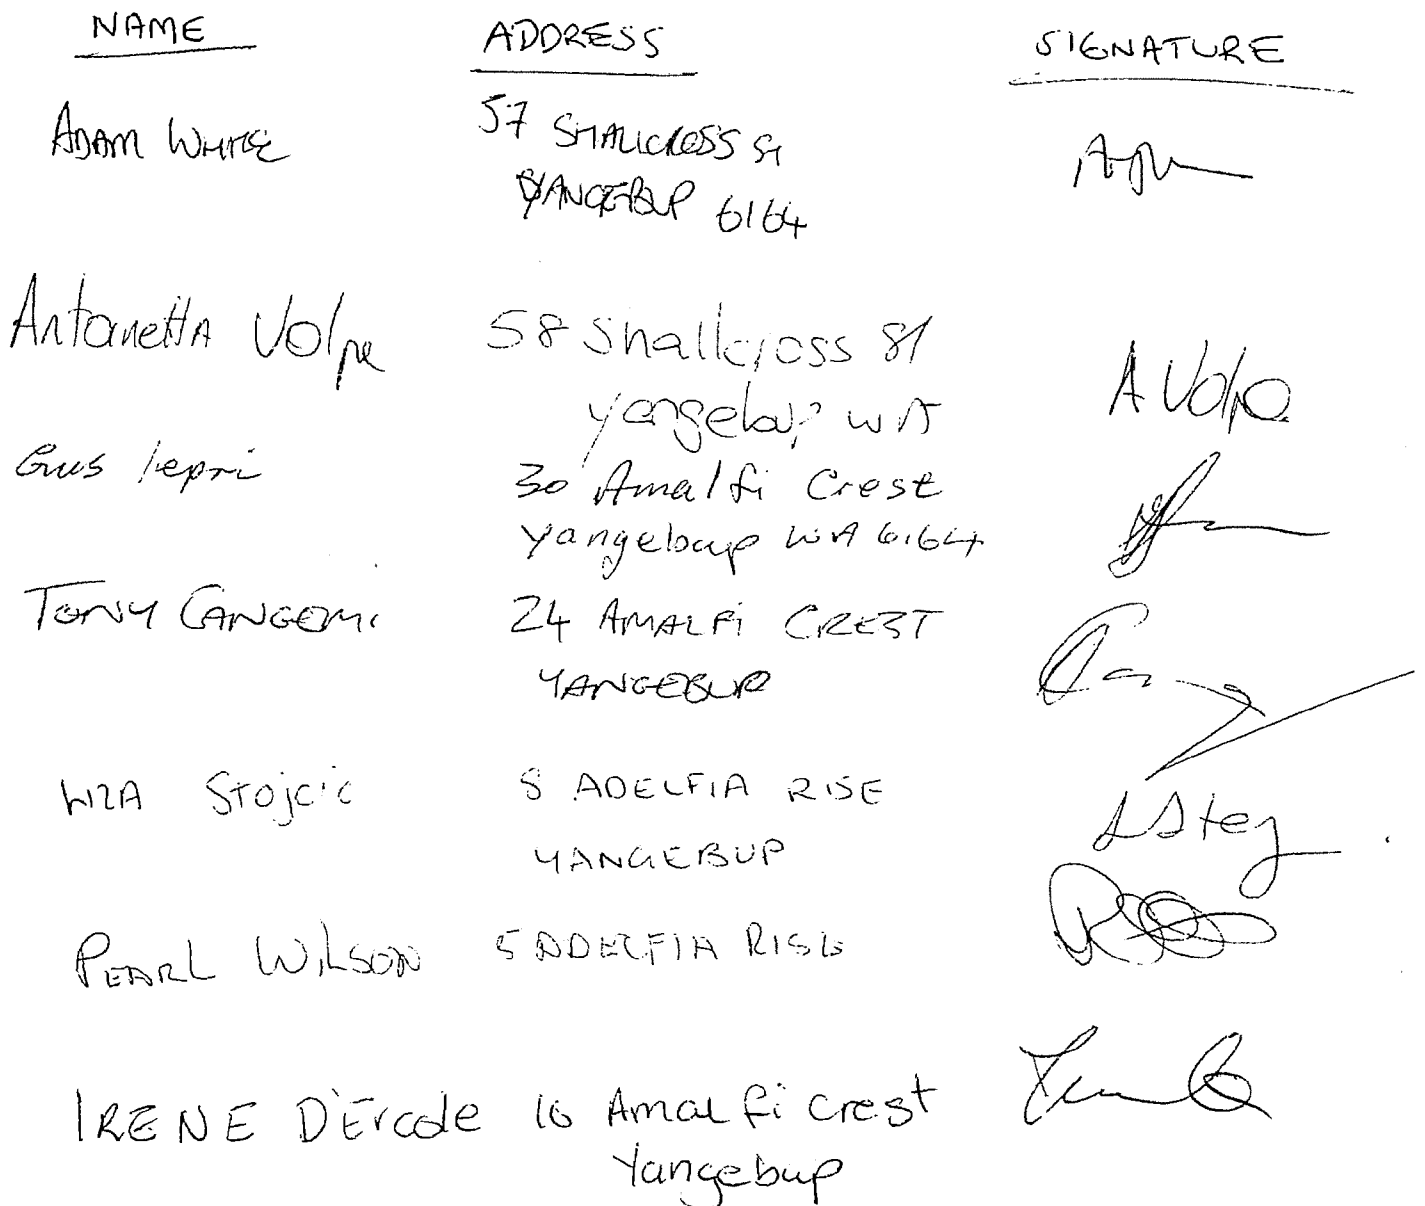 NAME ADDRESS SIGNATURE
ADAM WHITE 57 SHALLCROSS ST
YANGEBUP 6164
Antonetta Volpe 58 Shallcross St A Volpe
yangebup WA
Gus Lepri 30 Amalfi Crest
Yangebup WA 6164
TONY CANGEMI 24 AMALFI CREST
YANGEBUP
LIZA Stojcic 8 ADELFIA RISE
YANGEBUP
PEARL WILSON 5 ADELFIA RISE
IRENE D'Ercole 16 Amalfi crest
Yangebup